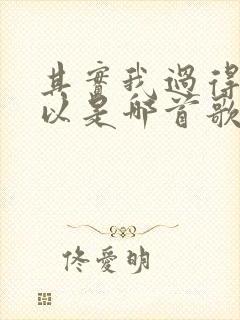 其實我過得
以是哪首歌
佟愛明